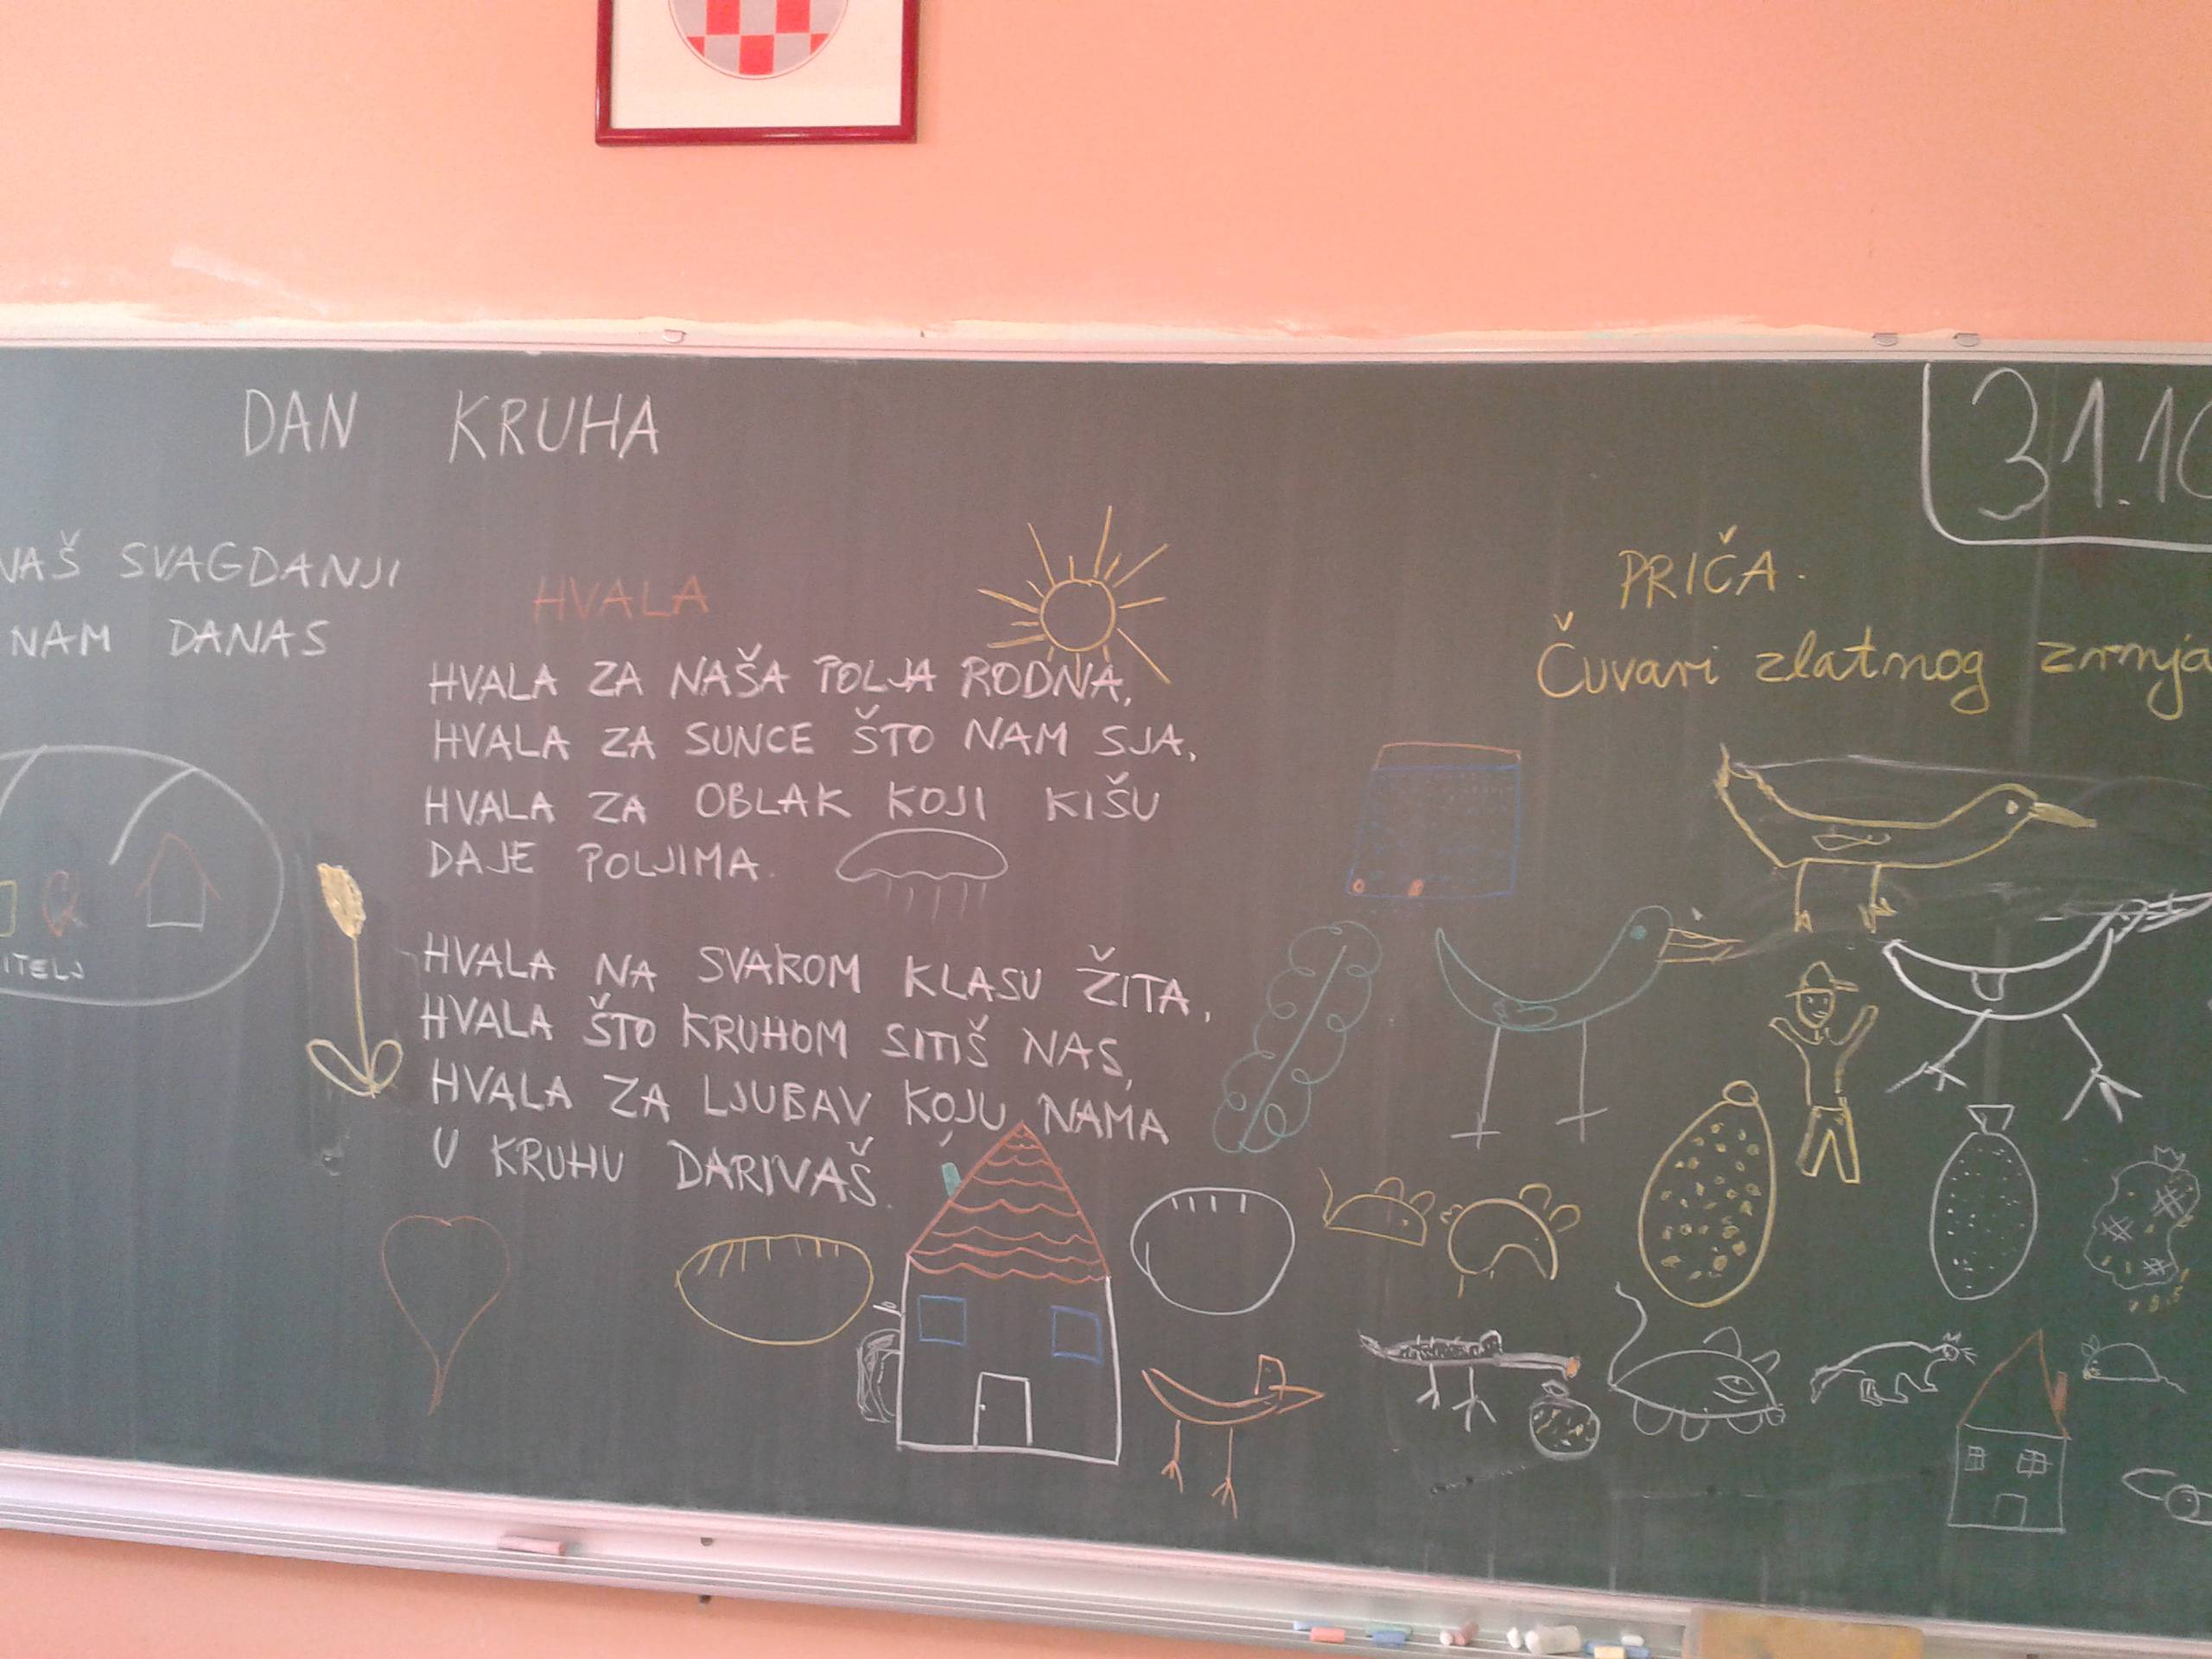 DAN KRUHA
31.10
NAŠ SVAGDANJI
NAM DANAS
ITELJ
HVALA
HVALA ZA NAŠA POLJA RODNA,
HVALA ZA SUNCE ŠTO NAM SJA,
HVALA ZA OBLAK KOJI KIŠU
DAJE POLJIMA.
HVALA NA SVAKOM KLASU ŽITA,
HVALA ŠTO KRUHOM SITIŠ NAS,
HVALA ZA LJUBAV KOJU NAMA
U KRUHU DARIVAŠ.
PRIČA.
Čuvari zlatnog zrnja